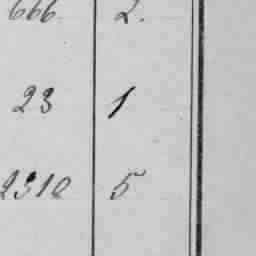 666 2.
23 1
2310 5